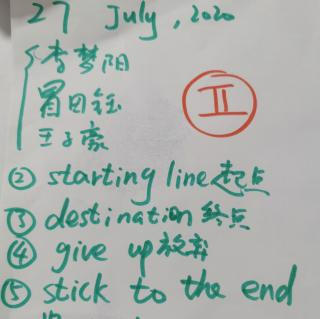 27 July, 2020
李梦阳
冒田钰
王子豪
Ⅱ
② starting line 起点
③ destination 终点
④ give up 放弃
⑤ stick to the end